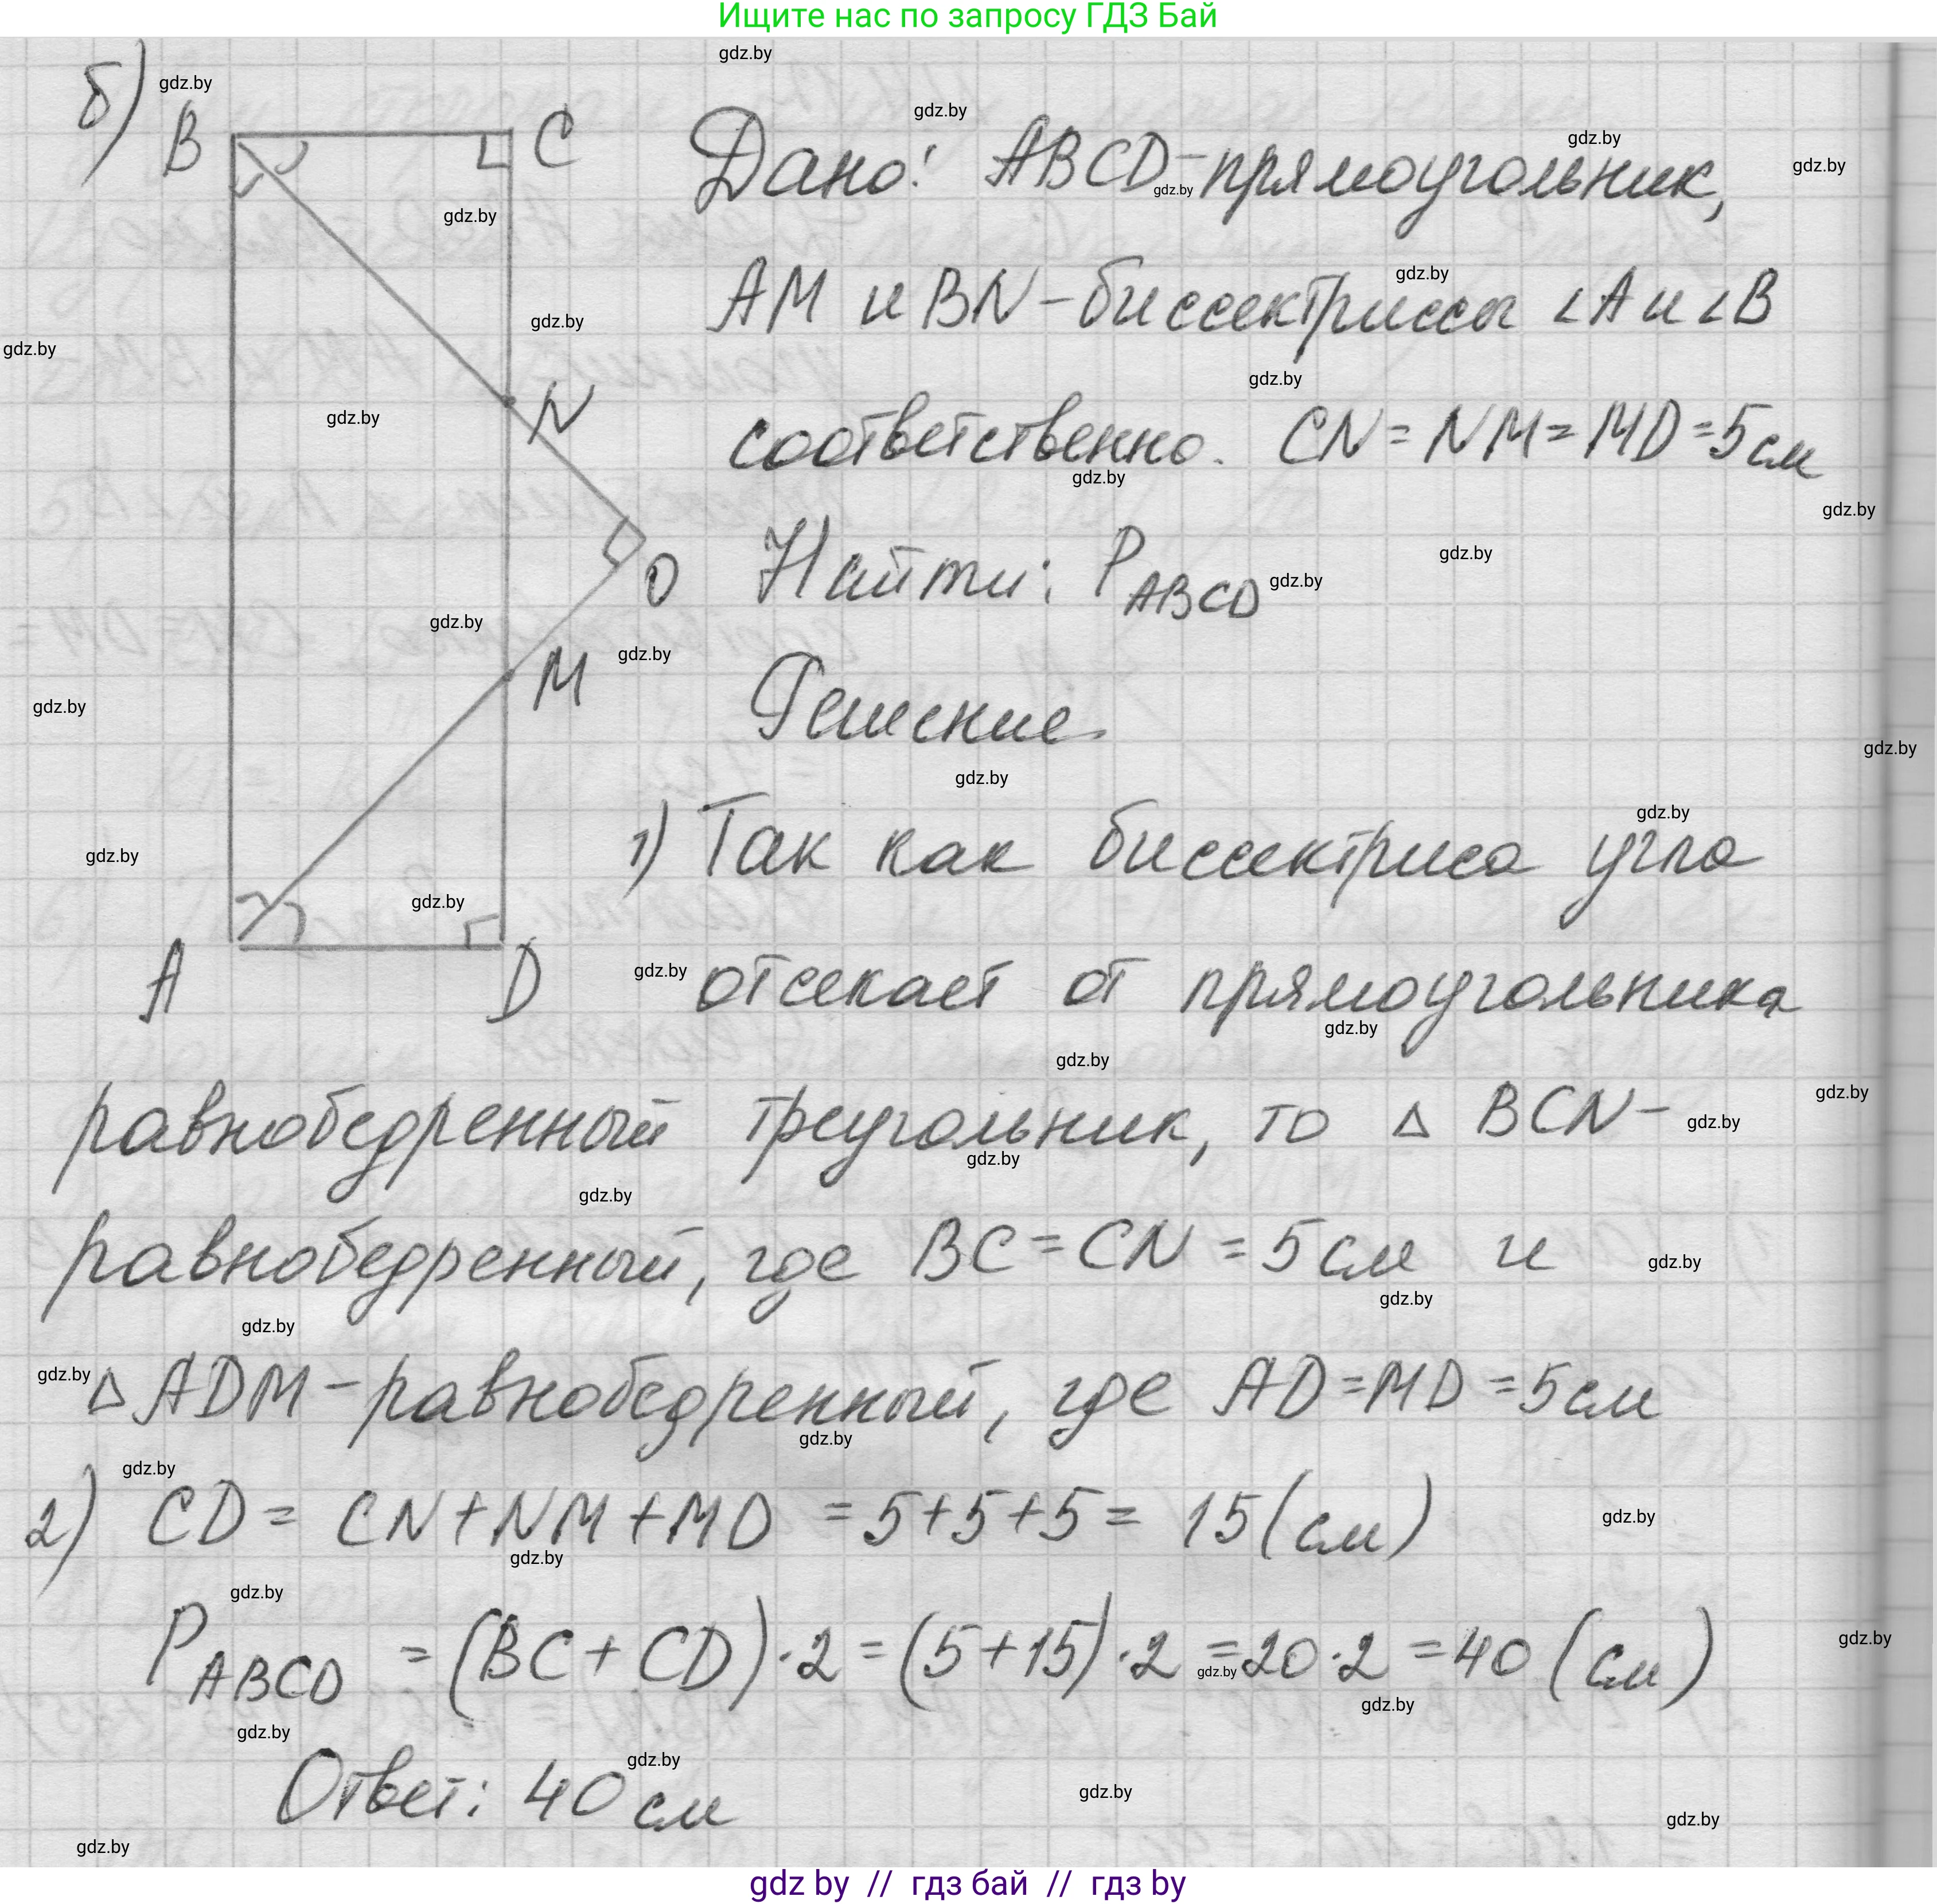 Ищите нас по запросу ГДЗ Бай
б)
B
C
N
O
M
A
D
Дано: ABCD-прямоугольник,
AM и BN-биссектрисы ∠A и ∠B
соответственно. CN = NM = MD = 5 см
Найти: P ABCD
Решение
1) Так как биссектриса угла
отсекает от прямоугольника
равнобедренный треугольник, то △ BCN -
равнобедренный, где BC = CN = 5 см и
△ ADM - равнобедренный, где AD = MD = 5 см
2) CD = CN + NM + MD = 5 + 5 + 5 = 15 (см)
P ABCD = (BC + CD) · 2 = (5 + 15) · 2 = 20 · 2 = 40 (см)
Ответ: 40 см
gdz.by
gdz by // гдз бай // гдз by